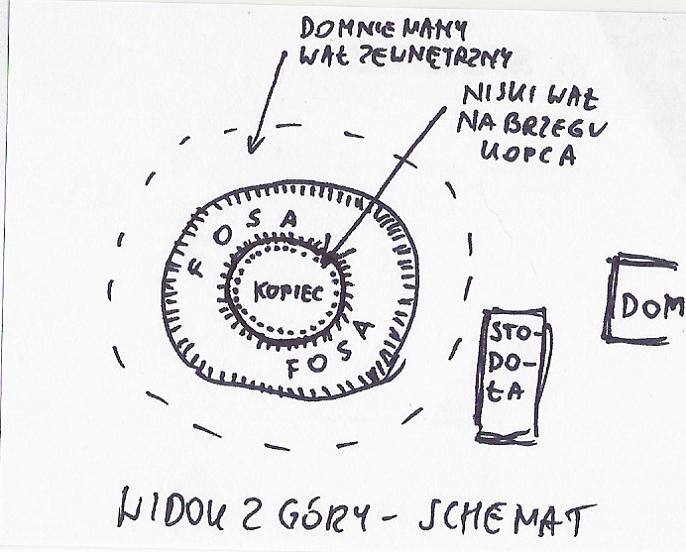 DOMNIEMANY
WAŁ ZEWNĘTRZNY
NISKI WAŁ
NA BRZEGU
KOPCA
FOSA
KOPIEC
FOSA
STO-
DO-
ŁA
DOM
WIDOK Z GÓRY - SCHEMAT